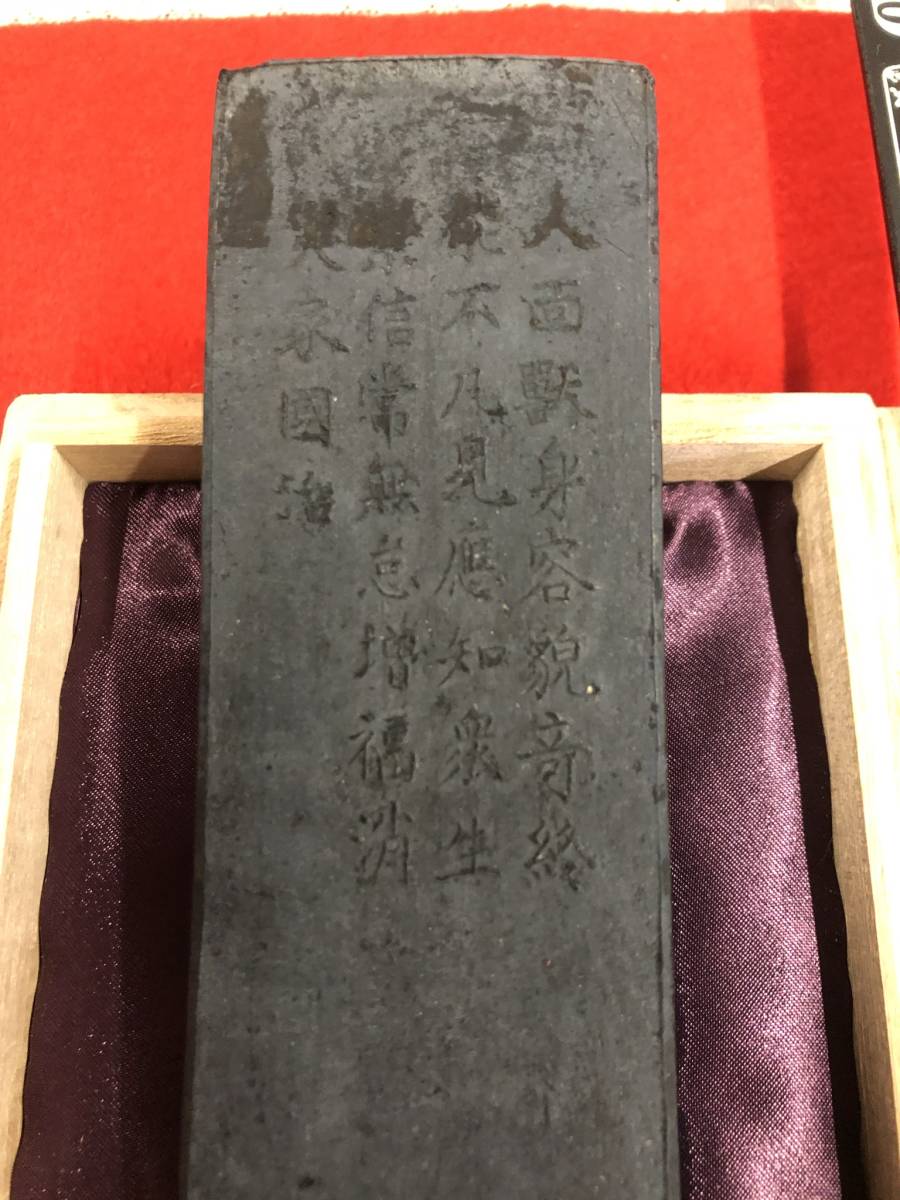 人面獸身容貌竒終
不凡見應知衆生
信常無怠增福消
家國治